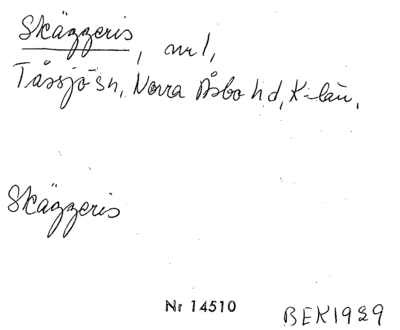 Skäggeris, nr 1,
Tåssjö sn, Norra Åsbo hd, K-län.
Skäggeris
Nr 14510
BEK1989